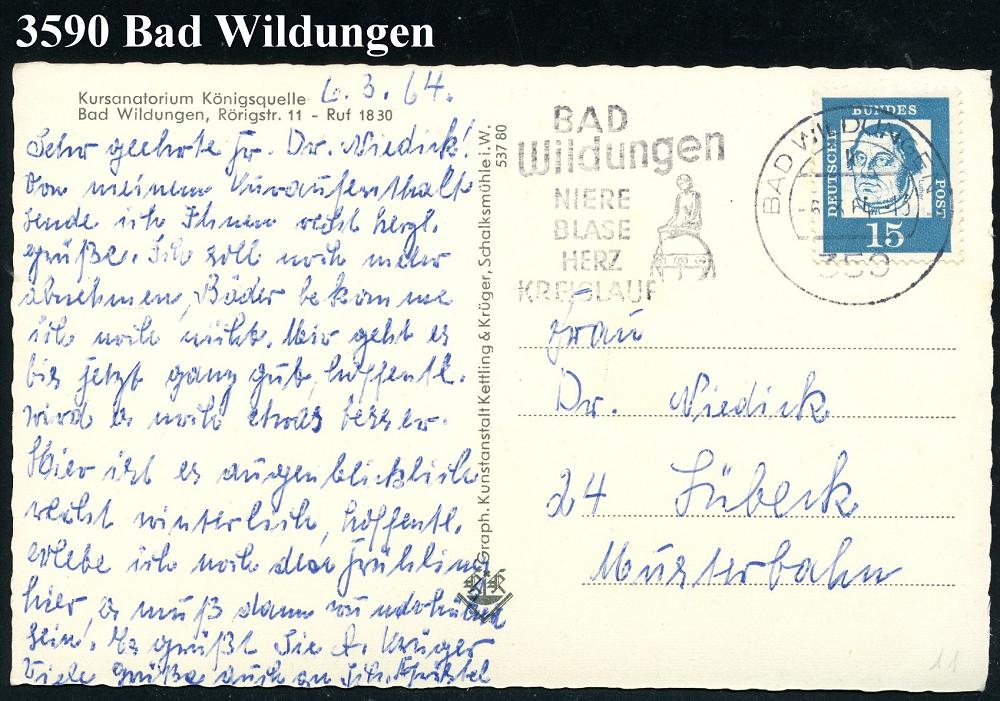 3590 Bad Wildungen
Kursanatorium Königsquelle
Bad Wildungen, Rörigstr. 11 - Ruf 1830
6.3.64.
Sehr geehrte Fr. Dr. Niedick!
Von meinem Kuraufenthalt
sende ich Ihnen recht herzl.
Grüße. Ich soll noch mehr
abnehmen, Bäder bekomme
ich noch nicht. Mir geht es
bis jetzt ganz gut, hoffentl.
wird es noch etwas besser.
Hier ist es augenblicklich
recht winterlich, hoffentl.
erlebe ich noch den Frühling
hier, es muß dann wunderschön
sein. Es grüßt Sie A. Krüger
Viele Grüße auch an Frl.
Graph. Kunstanstalt Kettling & Krüger, Schalksmühle i. W.
537 80
BAD
Wildungen
NIERE
BLASE
HERZ
KREISLAUF
BAD WILDUNGEN
359
DEUTSCHE
BUNDES
POST
15
Frau
Dr. Niedick
24 Lübeck
Musterbahn
11